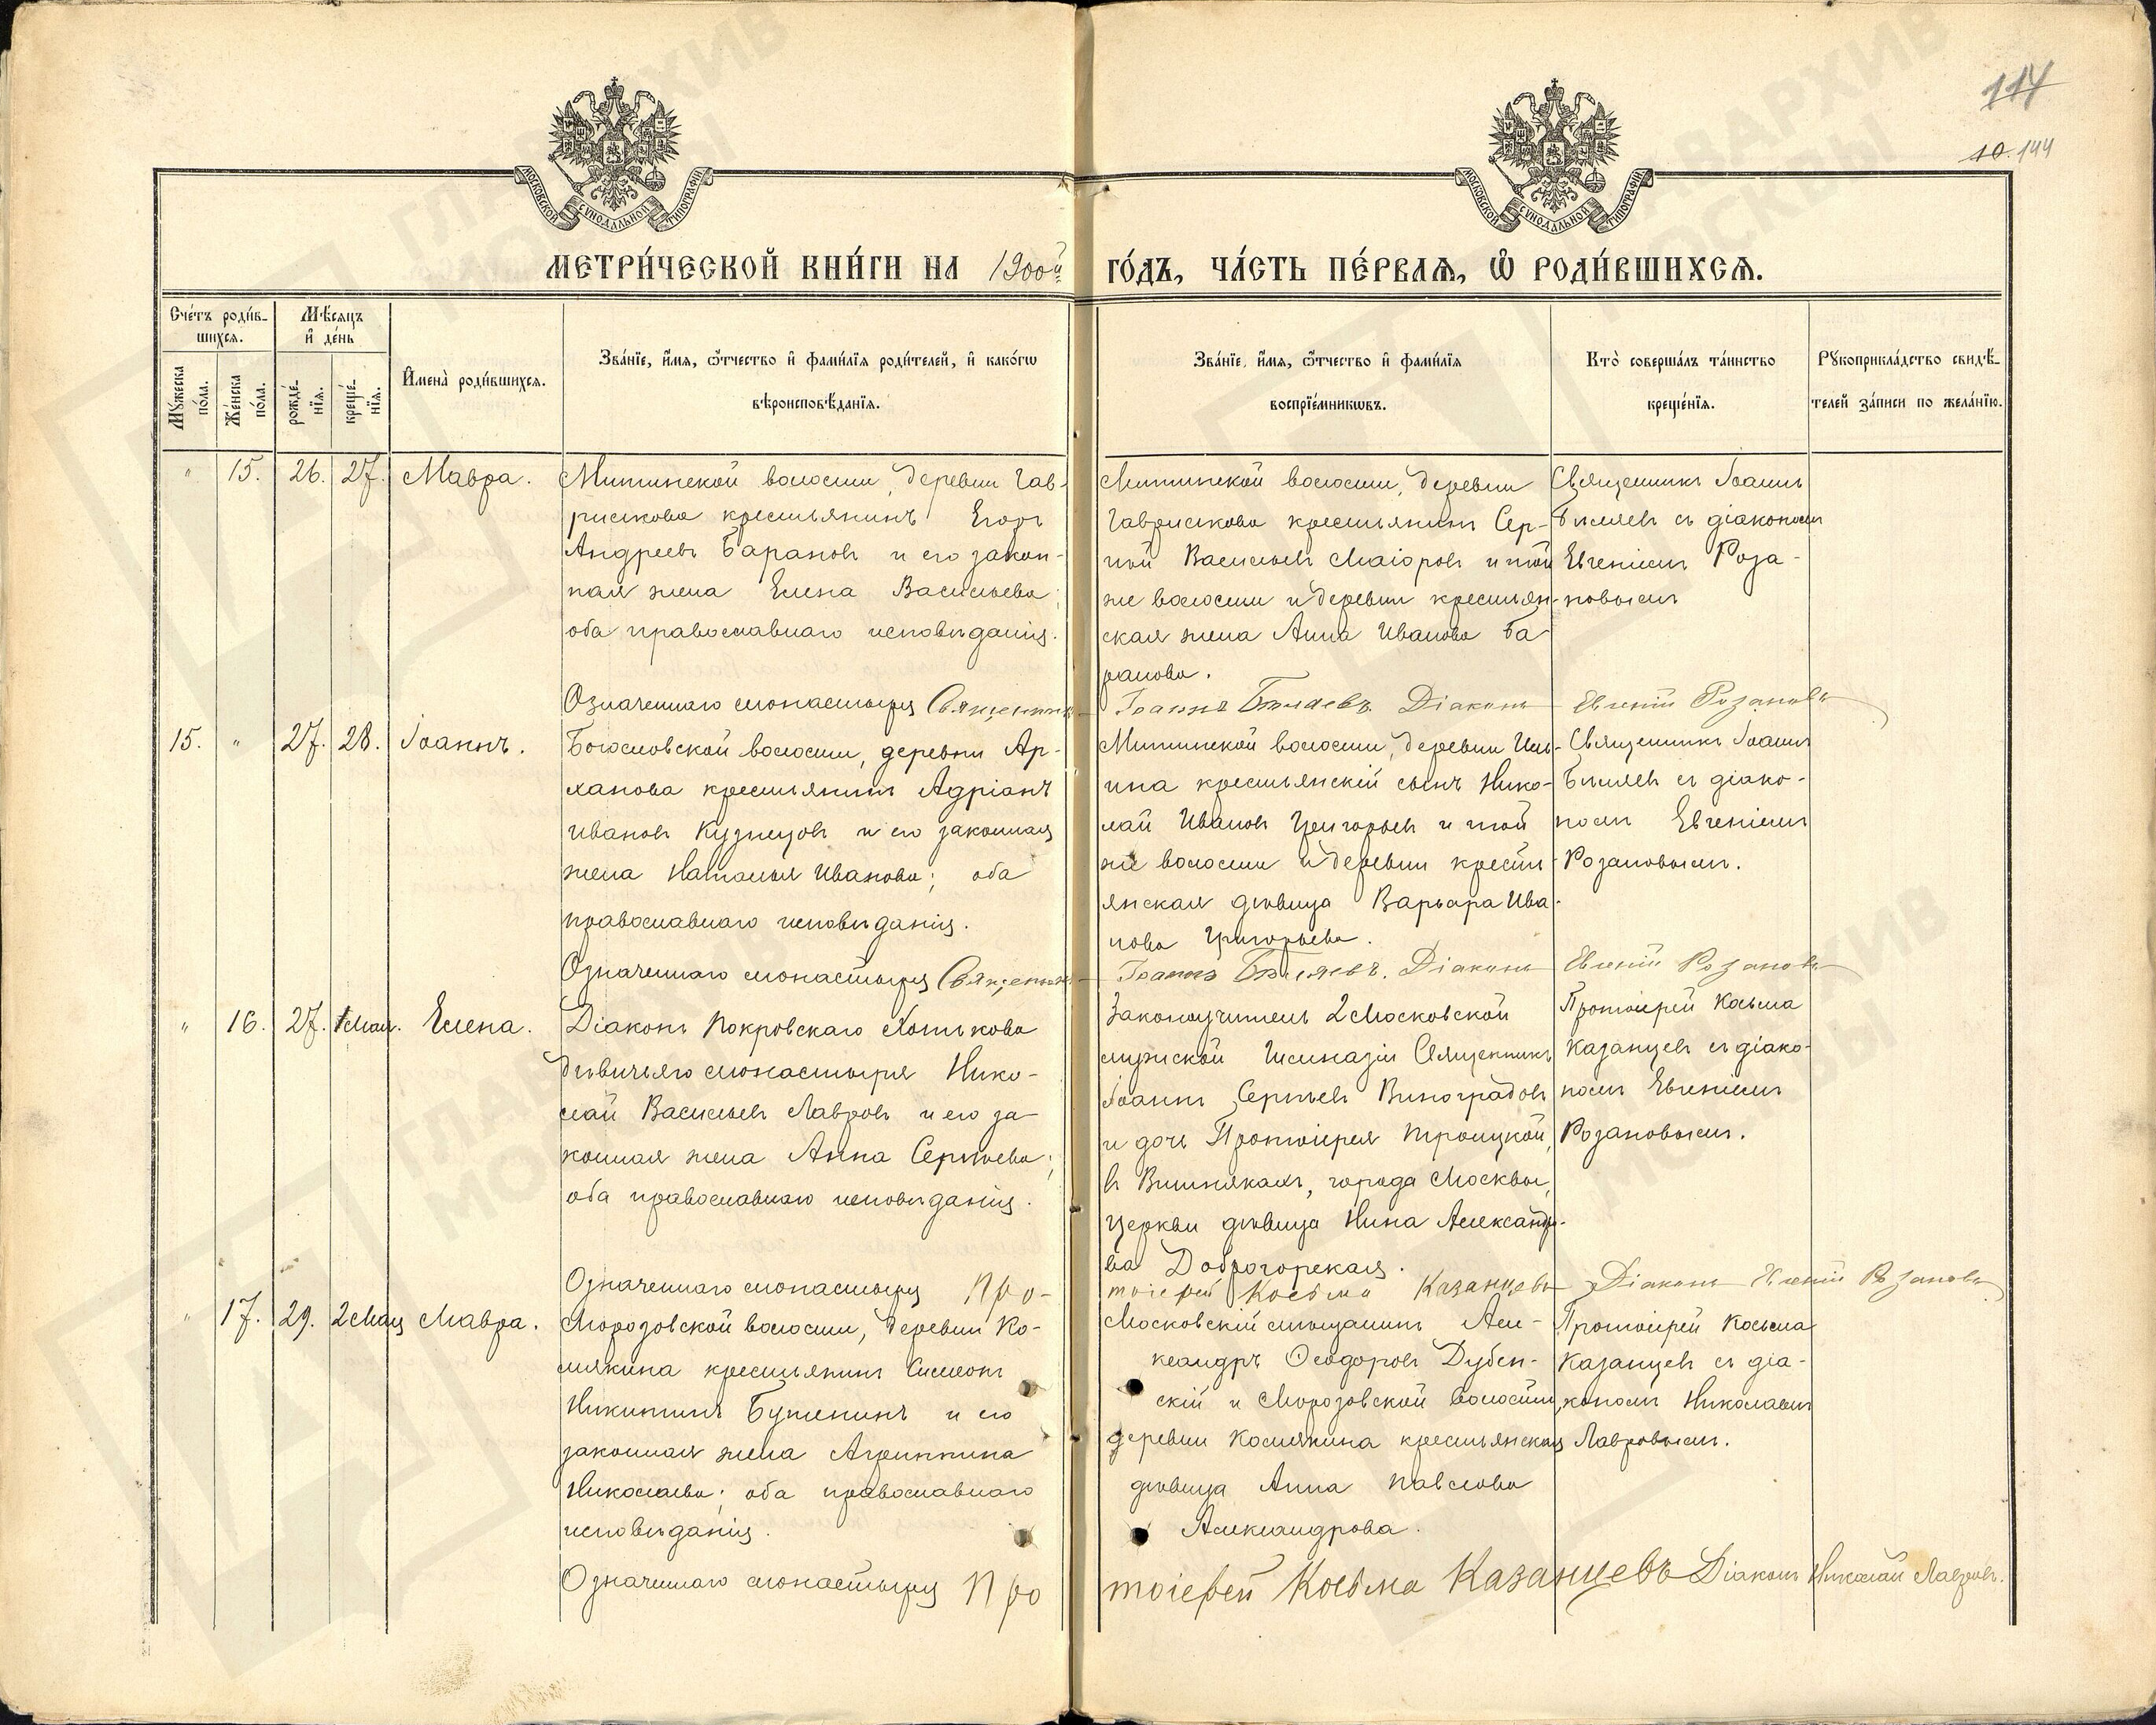 114
10. 144
МОСКОВСКОЙ СѴНОДАЛЬНОЙ ТИПОГРАФІИ
МОСКОВСКОЙ СѴНОДАЛЬНОЙ ТИПОГРАФІИ
МЕТРИ́ЧЕСКОЙ КНИ́ГИ НА 1900й ГО́ДЪ, ЧА́СТЬ ПЕ́РВАѦ, Ѽ РОДИ́ВШИХСѦ.
Сче́тъ роди́в-
шихсѧ.
Мꙋ́жеска по́ла.
Же́нска по́ла.
Мѣ́сяцъ и҆ де́нь
рожде́-
нїѧ.
креще́-
нїѧ.
И҆мена̀ роди́вшихсѧ.
Зва́нїе, и҆́мѧ, ѻ҆́тчество и҆ фами́лїѧ роди́телей, и҆ како́гѡ
вѣроисповѣ́данїѧ.
Зва́нїе, и҆́мѧ, ѻ҆́тчество и҆ фами́лїѧ
воспрїе́мникѡвъ.
Кто̀ соверша́лъ та́инство
креще́нїѧ.
Рꙋкоприкла́дство свидѣ́-
телей за́писи по жела́нїю.
" 15. 26. 27. Мавра.
Митинской волости, деревни Гав-
рилкова крестьянинъ Егоръ
Андреевъ Барановъ и его закон-
ная жена Елена Васильева;
оба православнаго исповѣданія.
Митинской волости, деревни
Гаврилкова крестьянинъ Сер-
гѣй Васильевъ Маіоровъ и той
же волости и деревни крестьян-
ская жена Анна Иванова Ба-
ранова.
Священникъ Іоаннъ
Бѣляевъ съ діакономъ
Евгеніемъ Роза-
новымъ
Означеннаго монастыря Священникъ Іоаннъ Бѣляевъ. Діаконъ Евгеній Розановъ
15. " 27. 28. Іоаннъ.
Богословской волости, деревни Ар-
ханова крестьянинъ Адріанъ
Ивановъ Кузнецовъ и его законная
жена Наталья Иванова; оба
православнаго исповѣданія.
Митинской волости, деревни Иль-
ина крестьянскій сынъ Нико-
лай Ивановъ Григорьевъ и той
же волости и деревни кресть-
янская дѣвица Варвара Ива-
нова Григорьева.
Священникъ Іоаннъ
Бѣляевъ съ діако-
номъ Евгеніемъ
Розановымъ.
Означеннаго монастыря Священникъ Іоаннъ Бѣляевъ. Діаконъ Евгеній Розановъ
" 16. 27. 1 Мая. Елена.
Діаконъ Покровскаго Хотькова
дѣвичьяго монастыря Нико-
лай Васильевъ Лавровъ и его за-
конная жена Анна Сергѣева;
оба православнаго исповѣданія.
Законоучитель 2 Московской
мужской Гимназіи Священникъ
Іоаннъ Сергѣевъ Виноградовъ
и дочь Протоіерея Троицкой,
въ Вишнякахъ, города Москвы,
церкви дѣвица Нина Александро-
ва Доброгорская.
Протоіерей Косьма
Казанцевъ съ діако-
номъ Евгеніемъ
Розановымъ.
Означеннаго монастыря Про-
тоіерей Косьма Казанцевъ Діаконъ Евгеній Розановъ
" 17. 29. 2 Мая Мавра.
Морозовской волости, деревни Ко-
мякина крестьянинъ Симеонъ
Никитинъ Бутенинъ и его
законная жена Агриппина
Николаева; оба православнаго
исповѣданія.
Московскій мѣщанинъ Але-
ксандръ Ѳеодоровъ Дубен-
скій и Морозовской волости,
деревни Комякина крестьянская
дѣвица Анна Павлова
Александрова.
Протоіерей Косьма
Казанцевъ съ діа-
кономъ Николаемъ
Лавровымъ.
Означеннаго монастыря Про
тоіерей Косьма Казанцевъ Діаконъ Николай Лавровъ.
ГЛАВАРХИВ
МОСКВЫ